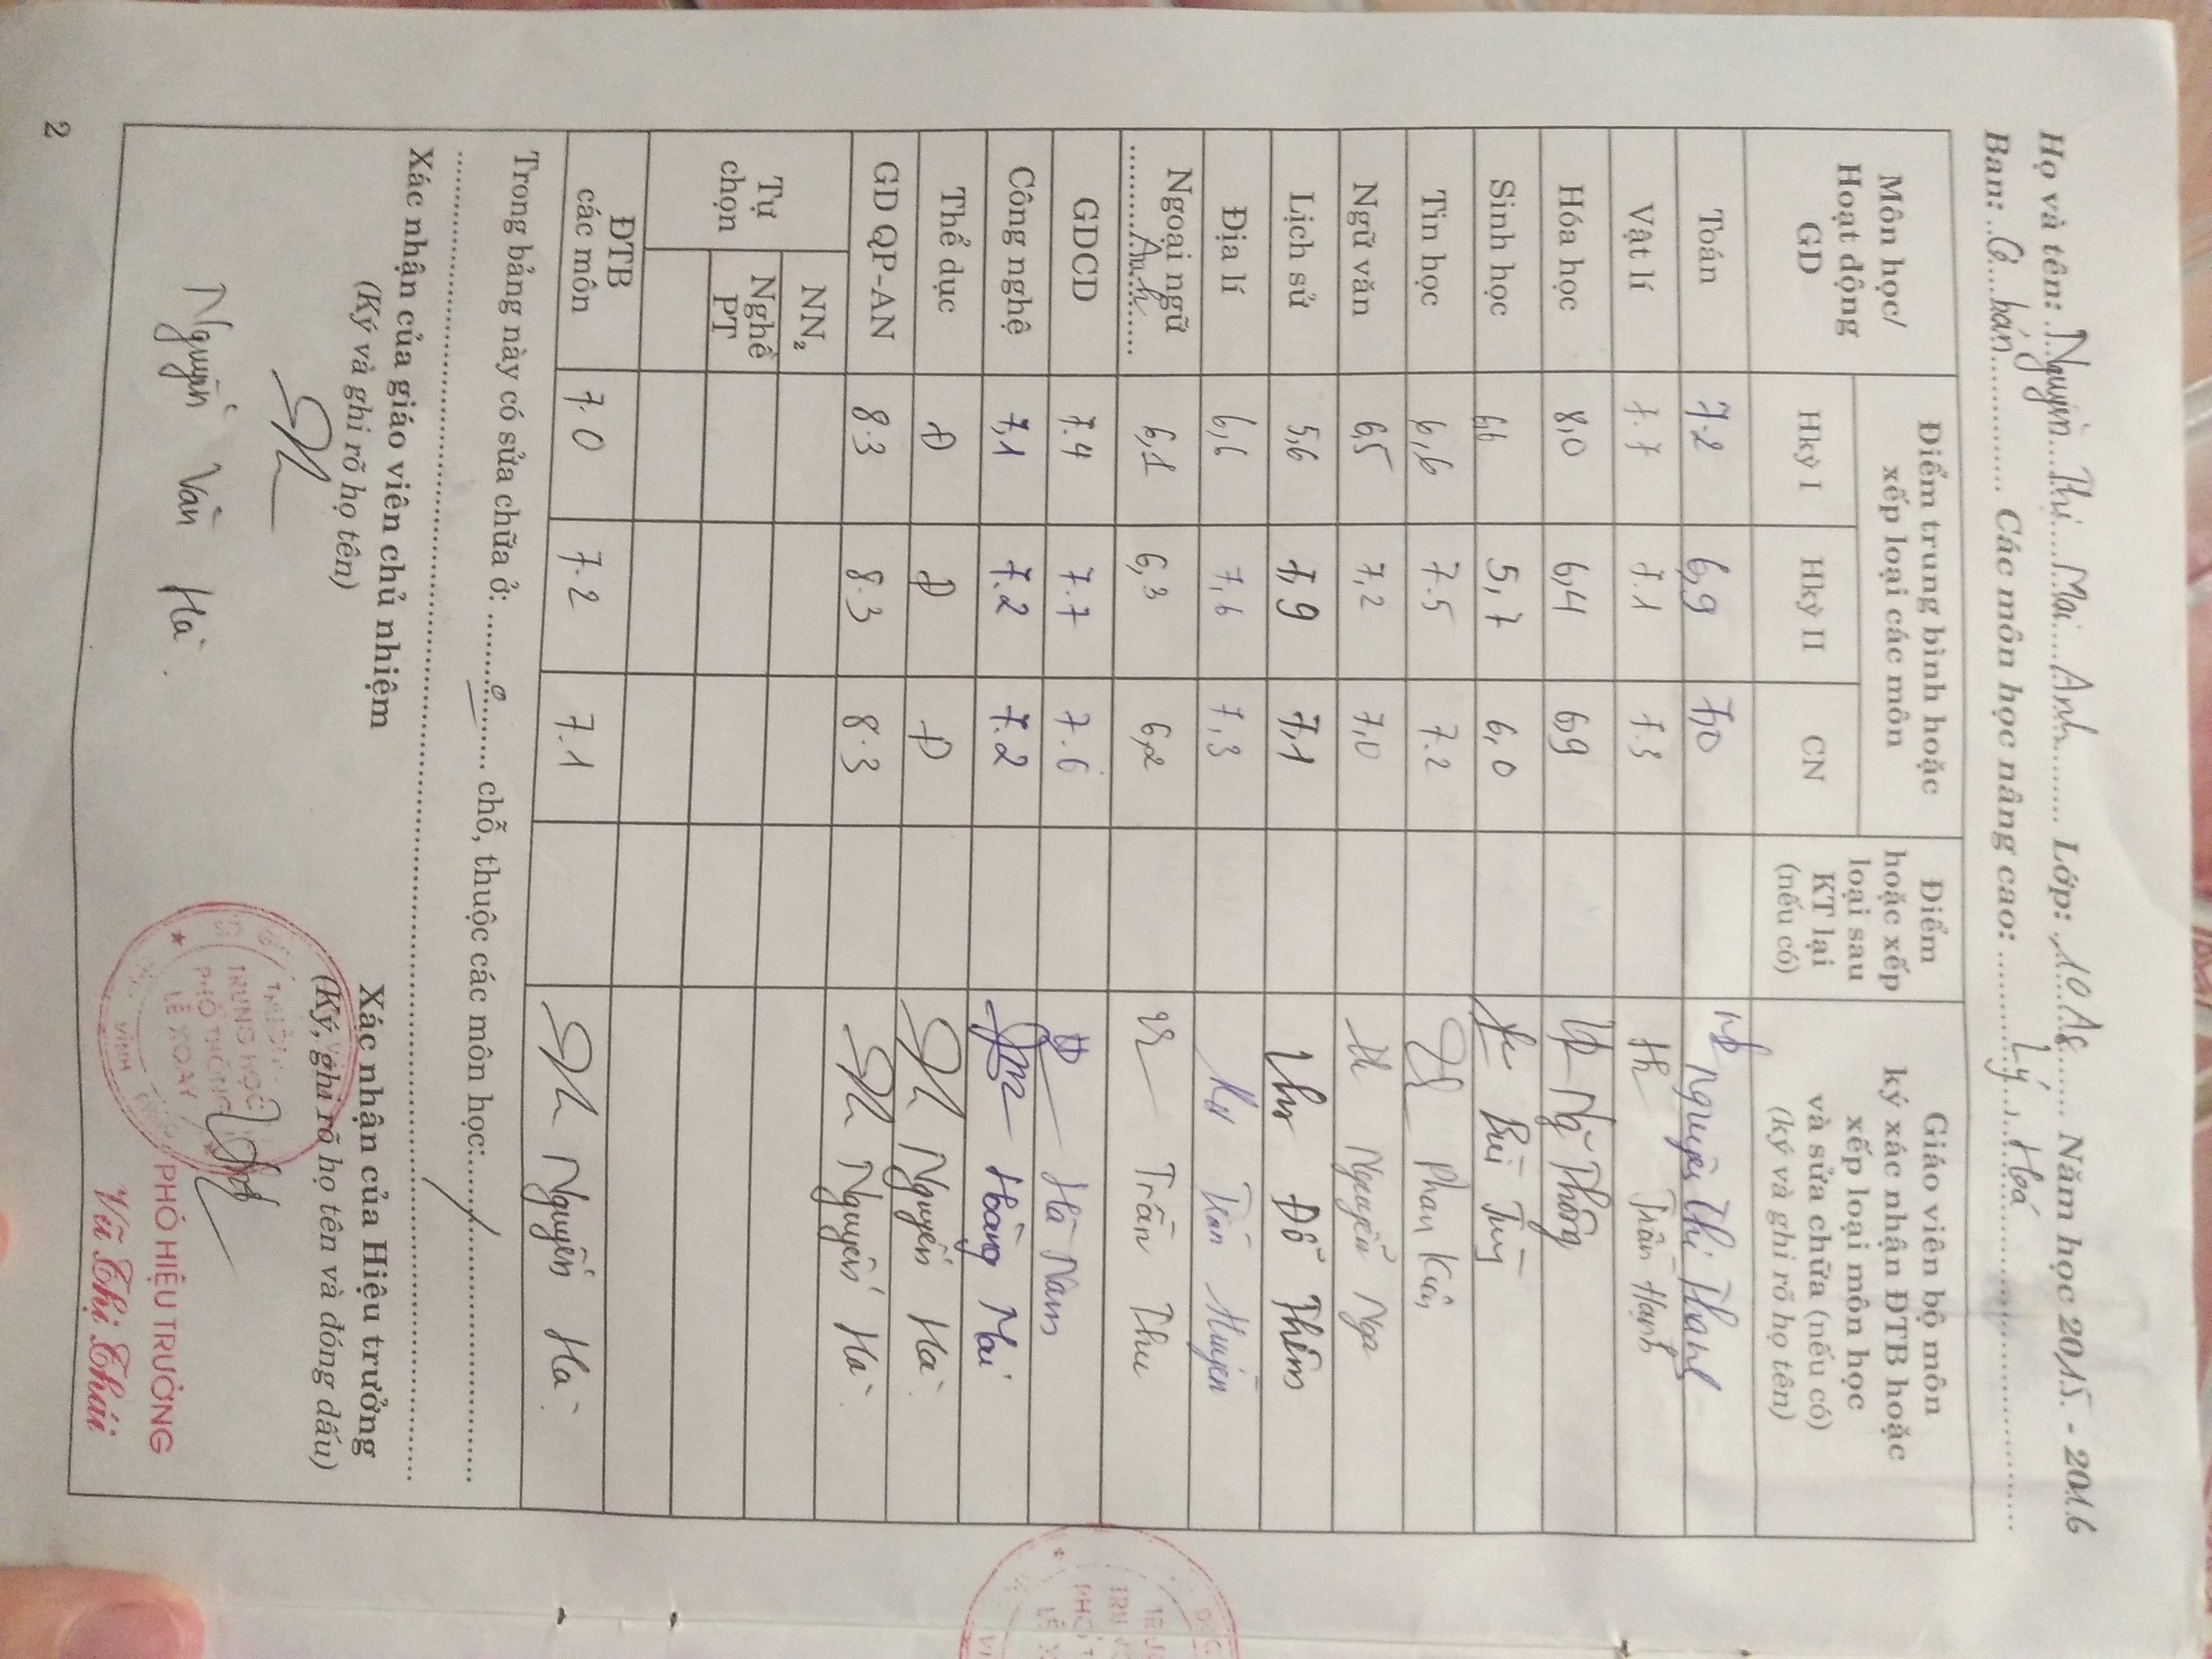 Họ và tên: Nguyễn Thị Mai Anh Lớp: 10A8 Năm học 2015 - 2016
Ban: Cơ bản Các môn học nâng cao: Lý, Hoá
Môn học/ Hoạt động GD
Điểm trung bình hoặc xếp loại các môn
Hkỳ I Hkỳ II CN
Điểm hoặc xếp loại sau KT lại (nếu có)
Giáo viên bộ môn ký xác nhận ĐTB hoặc xếp loại môn học và sửa chữa (nếu có) (ký và ghi rõ họ tên)
Toán 7.2 6,9 7,0 Nguyễn Thị Thanh
Vật lí 7.7 7.1 7.3 Trần Hạnh
Hóa học 8,0 6,4 6,9 Ng Thông
Sinh học 6,6 5,7 6,0 Bùi Tùng
Tin học 6,6 7.5 7.2 Phan
Ngữ văn 6,5 7,2 7,0 Nguyễn Nga
Lịch sử 5,6 7,9 7,1 Đỗ Thêm
Địa lí 6,6 7,6 7,3 Trần Huyền
Ngoại ngữ Anh 6,1 6,3 6,2 Trần Thu
GDCD 7.4 7.7 7.6 Hà Nam
Công nghệ 7,1 7.2 7.2 Hoàng Mai
Thể dục Đ Đ Đ Nguyễn Hà
GD QP-AN 8.3 8.3 8.3 Nguyễn Hà
Tự chọn
NN₂
Nghề PT
ĐTB các môn 7.0 7.2 7.1 Nguyễn Hà
Trong bảng này có sửa chữa ở: 0 chỗ, thuộc các môn học: /
Xác nhận của giáo viên chủ nhiệm
(Ký và ghi rõ họ tên)
Nguyễn Văn Hà
Xác nhận của Hiệu trưởng
(Ký, ghi rõ họ tên và đóng dấu)
TRƯỜNG
TRUNG HỌC
PHỔ THÔNG
LÊ XOAY
VĨNH
PHÓ HIỆU TRƯỞNG
Vũ Thị Thái
2